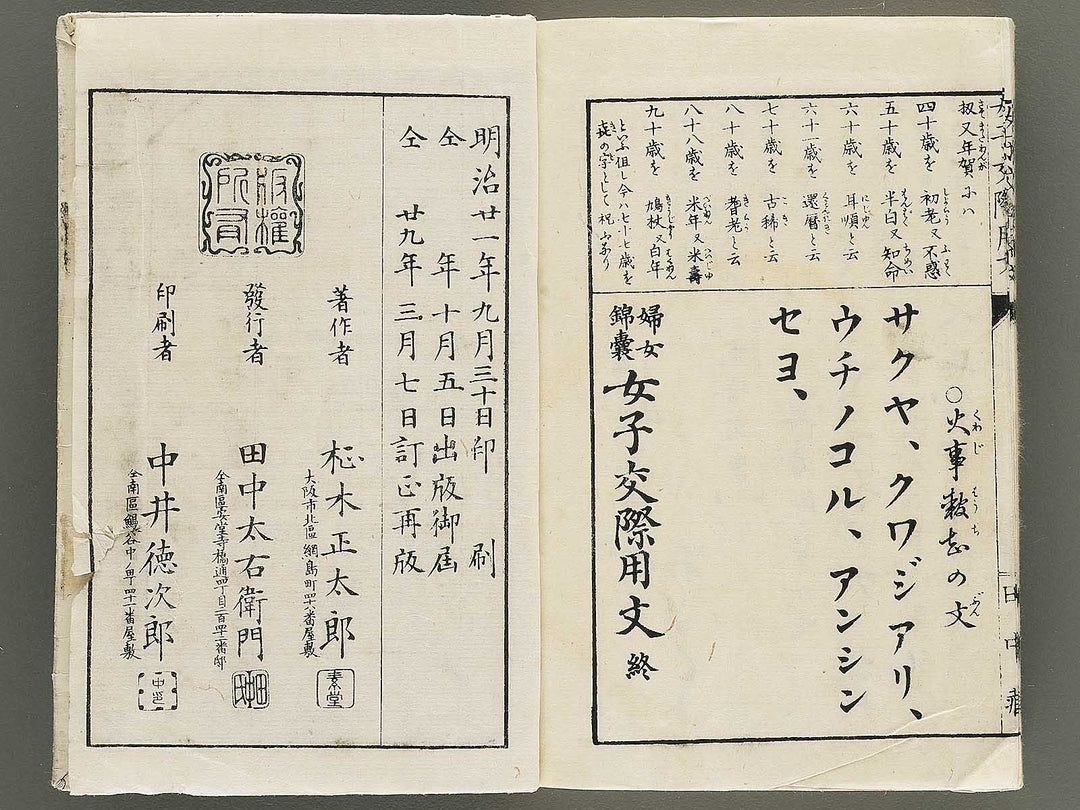 扨又年賀ニハ
四十歳を 初老又不惑
五十歳を 半白又知命
六十歳を 耳順と云
六十一歳を 還暦と云
七十歳を 古稀と云
八十歳を 耆老と云
八十八歳を 米年又米壽
九十歳を 鳩杖又白年
といふ但し今ハ七十七歳を
㐂の字として祝ふなり
○火事報知の文
サクヤ、クワジアリ、
ウチノコル、アンシン
セヨ、
婦女
錦囊
女子交際用文 終
田中藏
明治廿一年九月三十日印刷
仝 年十月五日出版御届
仝 廿九年三月七日訂正再版
版權
所有
著作者 柾木正太郎
大阪市北區網島町四十八番屋敷
素堂
發行者 田中太右衛門
仝南區安堂寺橋通四丁目二百四十一番邸
田中
印刷者 中井徳次郎
仝南區鰻谷中ノ町四十一番屋敷